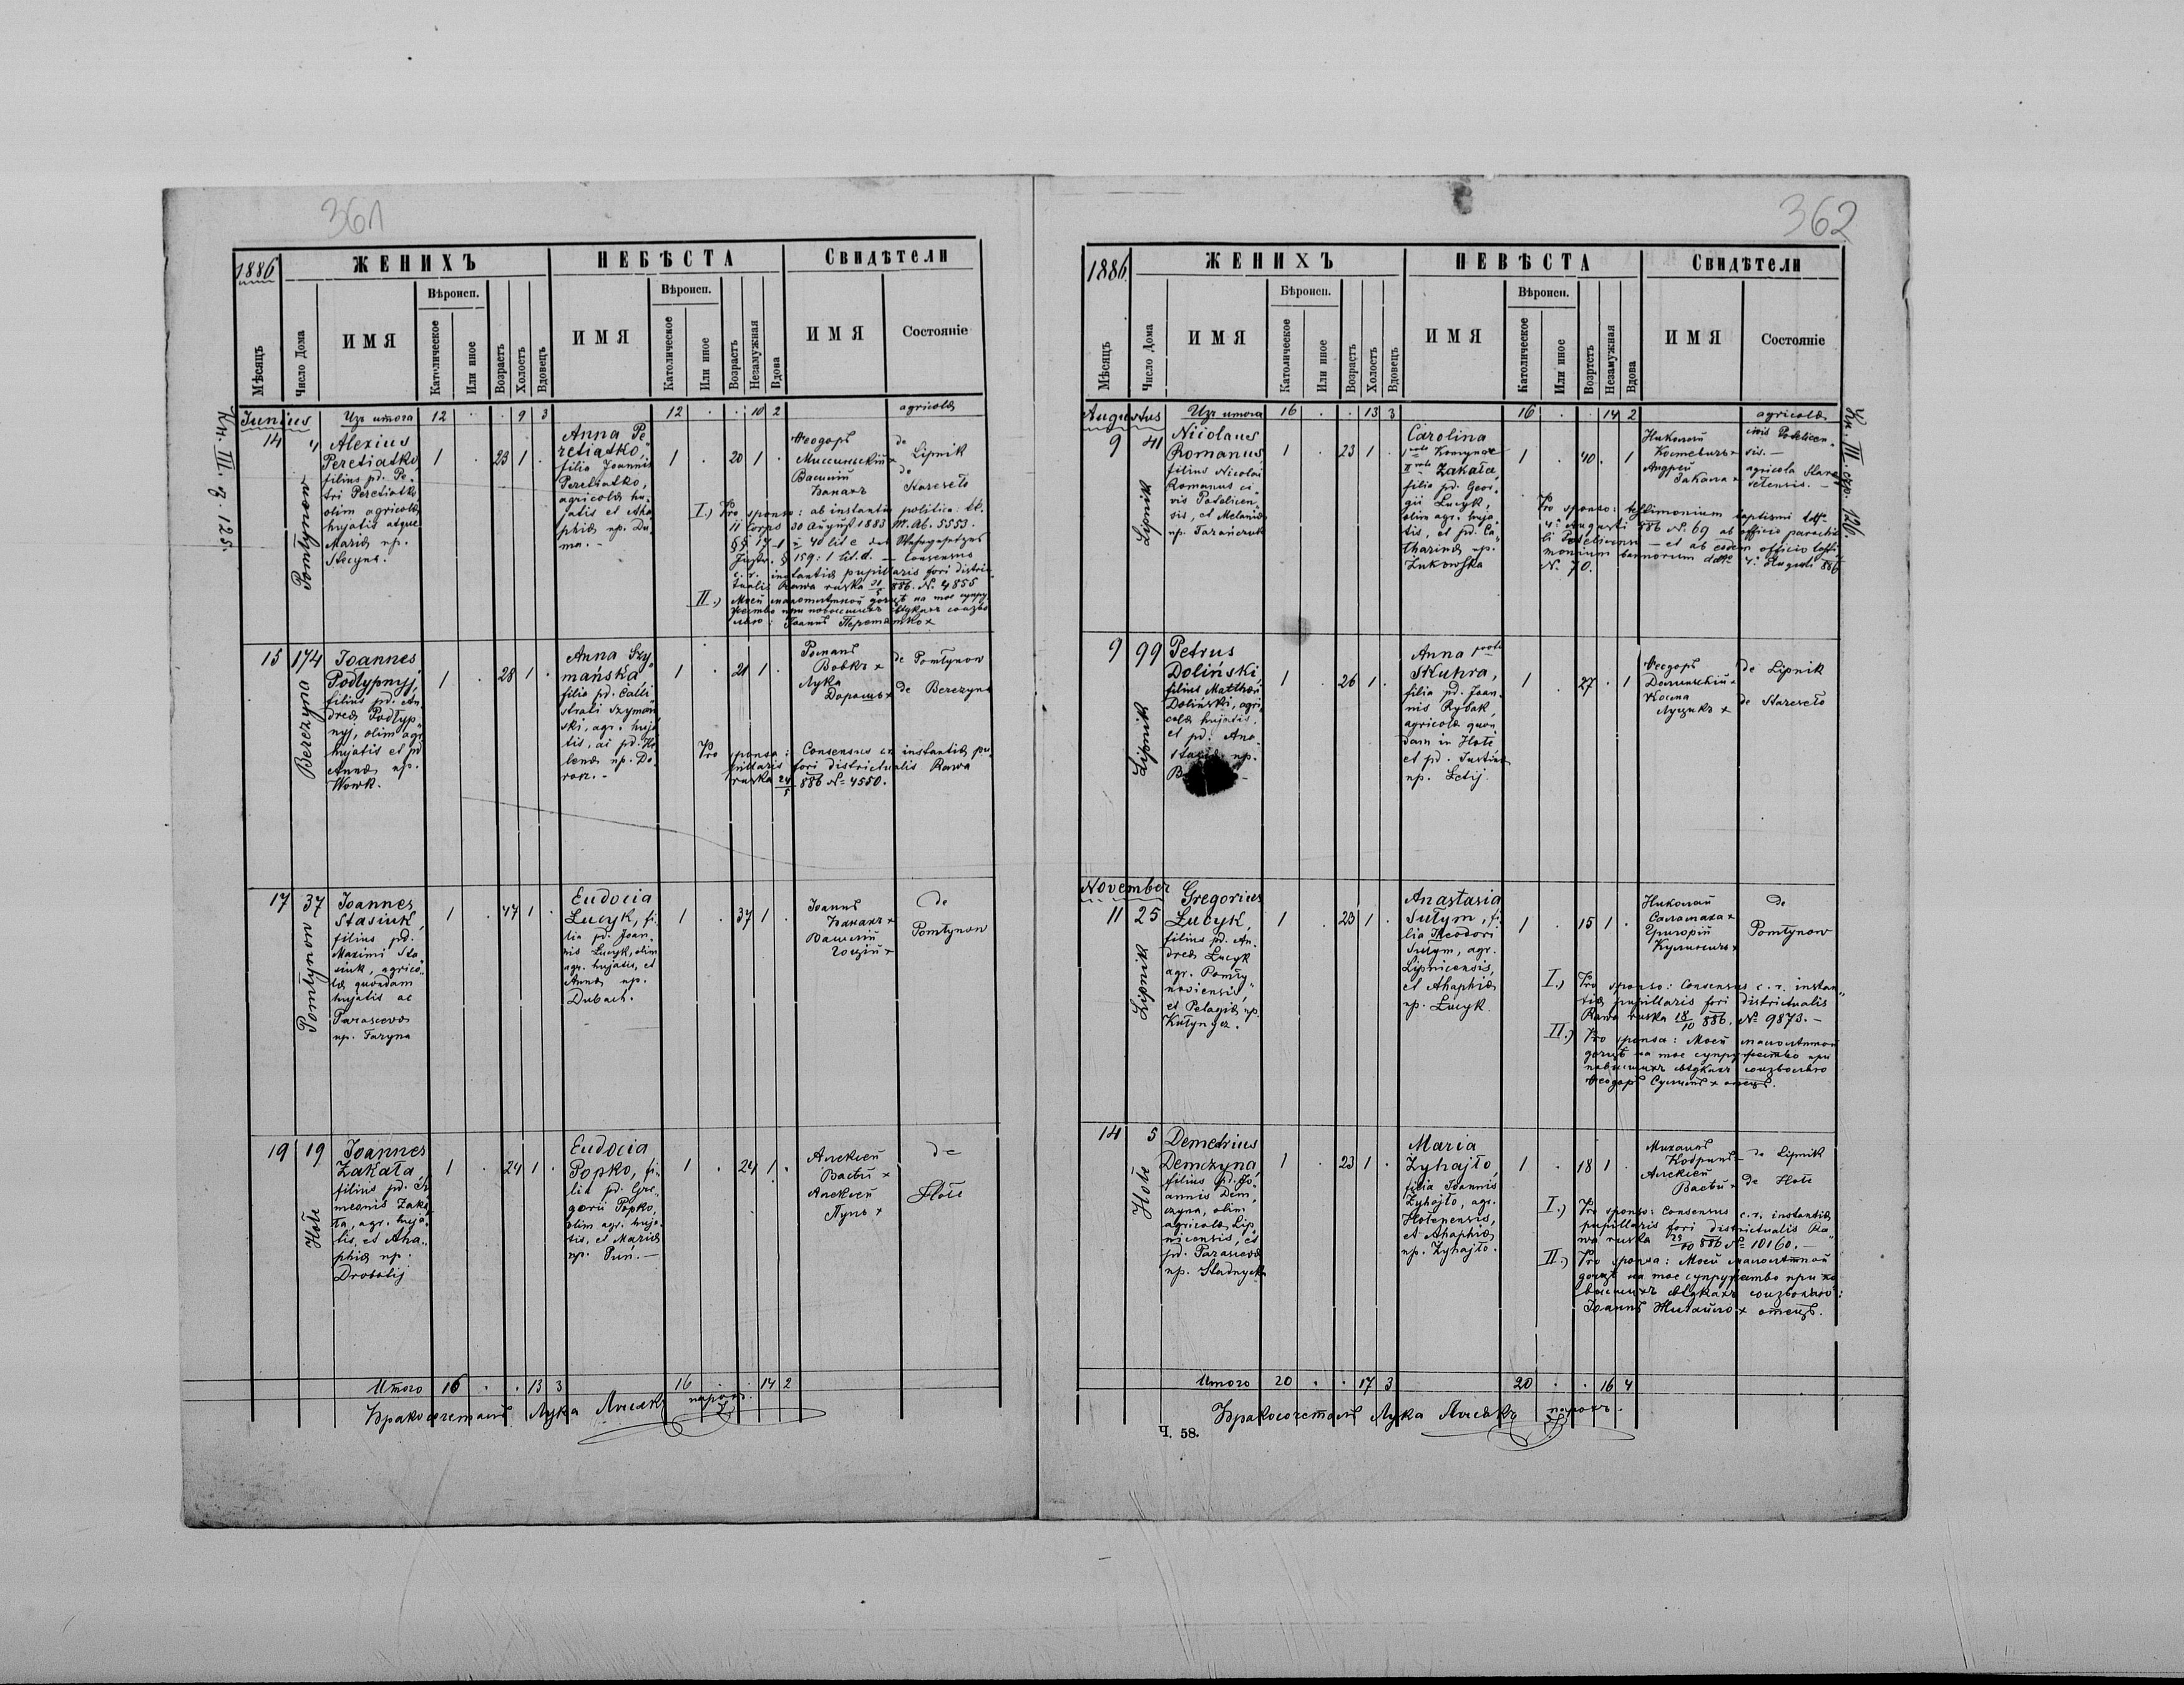 361
1886
ЖЕНИХЪ
НЕБѢСТА
Свидѣтели
Мѣсяцъ
Число Дома
ИМЯ
Вѣроисп.
Католическое
Или иное
Возрастъ
Холостъ
Вдовецъ
ИМЯ
Вѣроисп.
Католическое
Или иное
Возрастъ
Незамужная
Вдова
ИМЯ
Состояніе
Junius
12 . . 9 3
12 . . 10 2
agricolæ
14 4
Pomłynow
Alexius
Peretiatko,
filius pd. Pe-
tri Peretiatko
olim agricolæ
hujatis atque
Mariæ np.
Stecyna.
1 . 23 1 .
Anna Pe
retiatko,
filia Joannis
Peretiatko,
agricolæ hu-
jatis et Aha
phiæ np. Du
ma. -
1 . 20 1 .
Ѳеодоръ
Василій
Банахъ
de
Lipnik
de
Stareseło
I.) Pro sponso: ab instantia politica:
11 Corps 30 August 1883 M. Ab. 5553.
§ 159: 1 lit. d. — Consensus
c. r. instantiæ pupillaris fori distric-
tualis Rawa ruska 886. № 4855
II.) Моей малолѣтной дочцѣ на тое супру
жество при повысшихъ свѣдкахъ соизво
ляю: Іоаннъ Перетятко +
15 174
Berezyna
Joannes
Podłypnyj,
filius pd. An-
dreæ Podłyp-
nyj, olim agr.
hujatis et pd
Annæ np.
Wowk.
1 . 28 1 .
Anna Szy-
mańska,
filia pd. Calli
strati Szyman
ski, agr. huja
tis, ac pd. He
lenæ np. Do
rosz. -
1 . 21 1 .
Романъ
Вовкъ +
Лука
Дорошъ +
de Pomłynow
de Berezyna
Pro sponsa: Consensus ex instantiæ pu-
pillaris fori districtualis Rawa
ruska 24/5 886 № 4550.
17 37
Pomłynow
Joannes
Stasiuk,
filius pd.
Maximi Sta
siuk, agrico-
læ quondam
hujatis ac
Parascevæ
np. Taryna
1 . 47 1 .
Eudocia
Łucyk, fi-
lia pd. Joan-
nis Łucyk, olim
agr. hujatis, et
Annæ np.
Dubach.
1 . 37 1 .
Іоаннъ
Банахъ +
Василій
de
Pomłynow
19 19
Hołe
Joannes
Zakała,
filius pd. Si
meonis Zaka
ła, agr. huja-
tis, et Aha-
phiæ np.
Drobotij
1 . 24 1 .
Eudocia
Popko, fi-
lia pd. Gre-
gorii Popko,
olim agr. huja-
tis, et Mariæ
np. Puń. —
1 . 24 1 .
Алексей
Алексей
Пунь +
de
Hołe
Итого 16 . . 13 3
16 . . 14 2
Бракосочеталъ Лука
Кн. III. с. 125.
362
1886
ЖЕНИХЪ
НЕВѢСТА
Свидѣтели
Мѣсяцъ
Число Дома
ИМЯ
Бѣроисп.
Католическое
Или иное
Возрастъ
Холостъ
Вдовецъ
ИМЯ
Вѣроисп.
Католическое
Или иное
Возртстъ
Незамужная
Вдова
ИМЯ
Состояніе
Augustus
16 . . 13 3
16 . . 14 2
agricolæ
9 41
Lipnik
Nicolaus
Romanus,
filius Nicolai
Romanus ci-
vis Potelicen-
sis, et Melaniæ
1 . 23 1 .
Carolina
II voto Zakała
filia pd. Geor-
gii Łucyk,
olim agr. huja
tis, et pd. Ca-
tharinæ np.
Żukowska
1 . 40 . 1
Николай
Андрей
Закала +
civis Potelicen-
sis. —
agricola Stare-
sełensis. —
Pro sponso: testimonium baptismi ddto
4. Augusti 886 № 69 ab officio parochia-
li Potelicensi — et ab eodem officio testi-
monium bannorum ddto 4. Augusti 886
№ 70.
9 99
Lipnik
Petrus
Doliński,
filius Matthæi
Doliński, agri
colæ hujatis.
et pd. Ana-
stasiæ np.
Anna
Skuhra,
filia pd. Joan-
nis Rybak,
agricolæ quon
dam in Hołe
et pd. Justinæ
np. Letij.
1 . 26 1 .
1 . 27 . 1
Ѳеодоръ
Косма
Луцикъ +
de Lipnik
de Staresełо
November
11 25
Lipnik
Gregorius
Łucyk,
filius pd. An-
dreæ Łucyk
agr. Pomły-
noviensis,
et Pelagiæ np.
1 . 23 1 .
Anastasia
Sułym, fi-
lia Theodori
Sułym, agr.
Lipnicensis,
et Ahaphiæ
np. Łucyk.
1 . 15 1 .
Николай
Саламаха +
Григорій
de
Pomłynow
I.) Pro sponso: Consensus c. r. instan-
tiæ pupillaris fori districtualis
Rawa ruska 18/10 886. № 9873. —
II.) Pro sponsa: Моей малолѣтной
дочцѣ на тое супружество при
повысшихъ свѣдкахъ соизволяю
Ѳеодоръ Сулимъ + отецъ.
14 5
Hołe
Demetrius
Demczyna,
filius pd. Jo-
annis Dem-
czyna, olim
agricolæ Lip
nicensis, et
pd. Parascevæ
np. Stadnyck
1 . 23 1 .
Maria
Zyhajło,
filia Joannis
Zyhajło, agr.
Hołenensis,
et Ahaphiæ
np. Zyhajło.
1 . 18 1 .
Михаилъ
Алексей
de Lipnik
de Hołe
I.) Pro sponso: Consensus c. r. instantiæ
pupillaris fori districtualis Ra-
wa ruska 886 № 10160. —
II.) Pro sponsa: Моей малолѣтной
дочцѣ на тое супружество при по
высшихъ свѣдкахъ соизволяю:
Іоаннъ Жигайло + отецъ.
Итого 20 . . 17 3
20 . . 16 4
Бракосочеталъ Лука
Ч. 58.
Кн. III. стр. 126